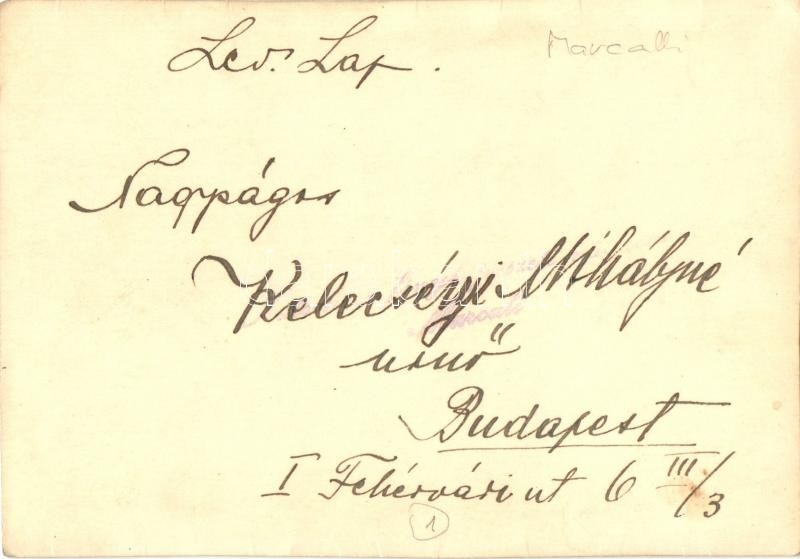 Lev. Lap.
Marcalli
Nagyságos
Kelecsényi Mihályné
úrnő
Budapest
I Fehérvári ut 6 III/3
1